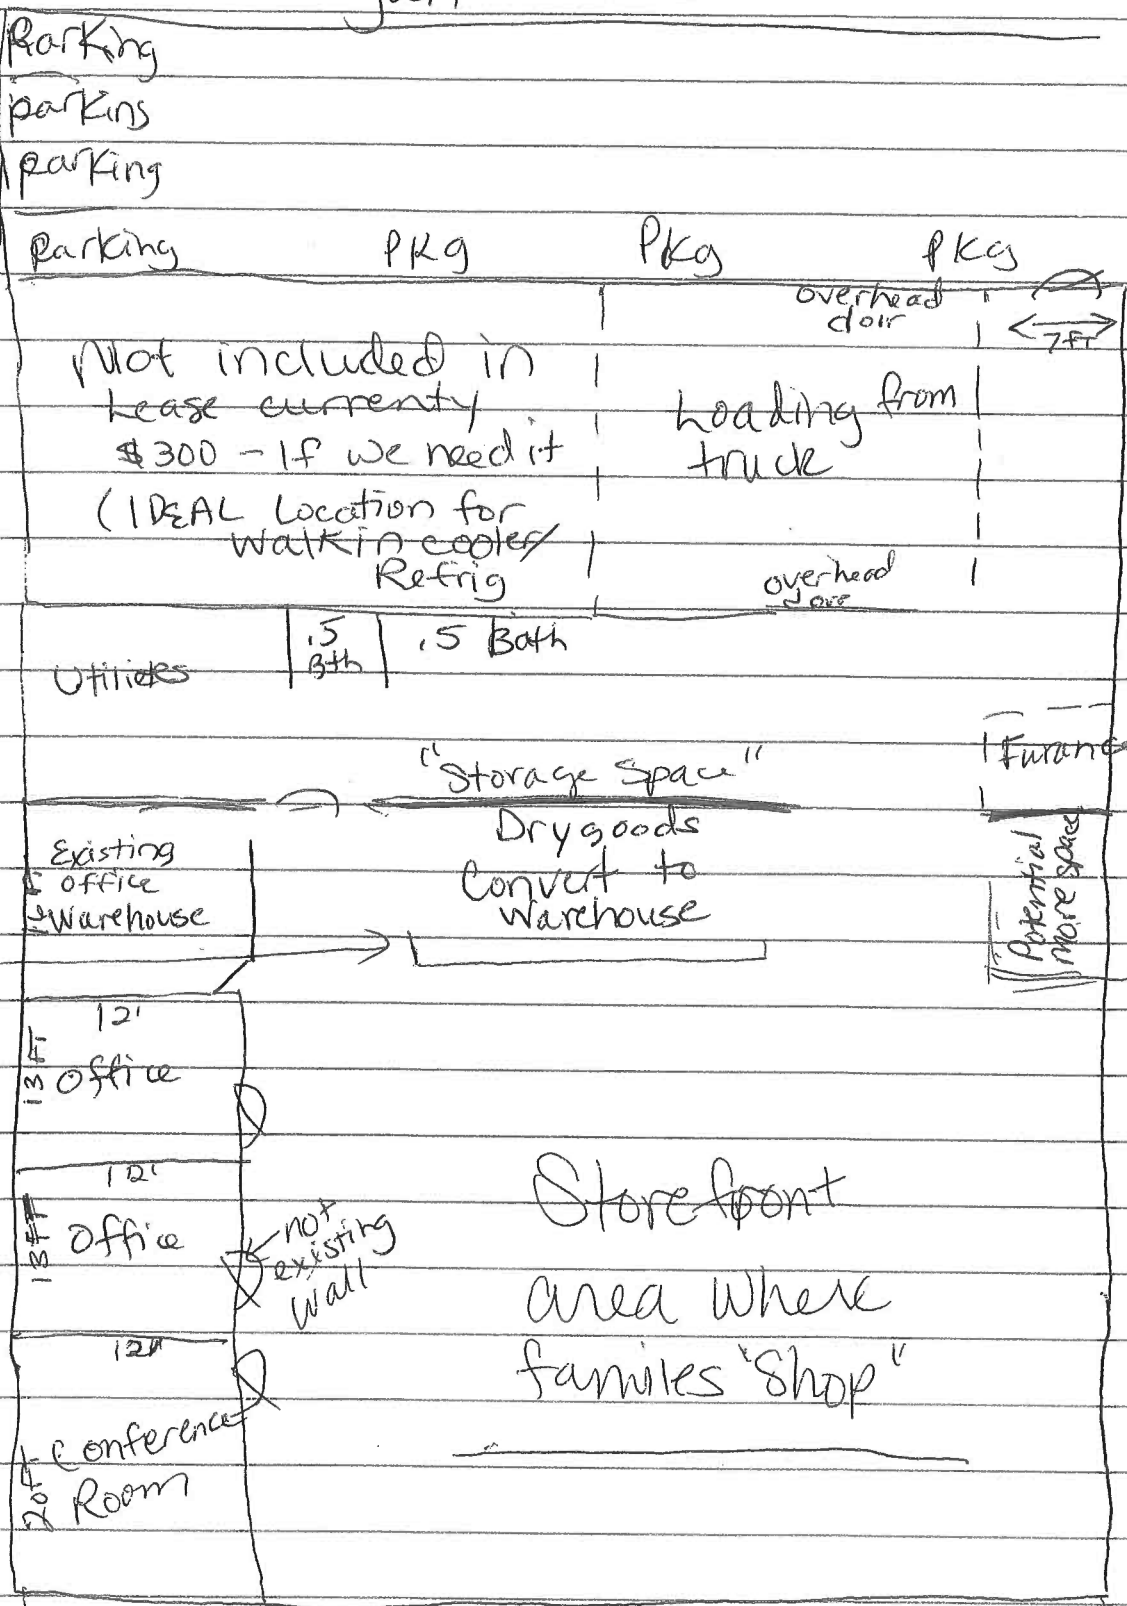 Parking
parking
parking
Parking PKg PKg PKg
overhead
door
7ft
Not included in
Lease currenty
$300 - If we need it
(IDEAL Location for
Walkin cooler/
Refrig
Loading from
truck
overhead
door
Utilities
.5
Bth
.5 Bath
Furanc
"Storage Space"
Drygoods
Convert to
Warehouse
Existing
office
Warehouse
Potential
more space
12'
13 Ft
Office
12'
13 FT
Office
not
existing
wall
12"
20Ft
Conference
Room
Storefront
area where
familes "Shop"